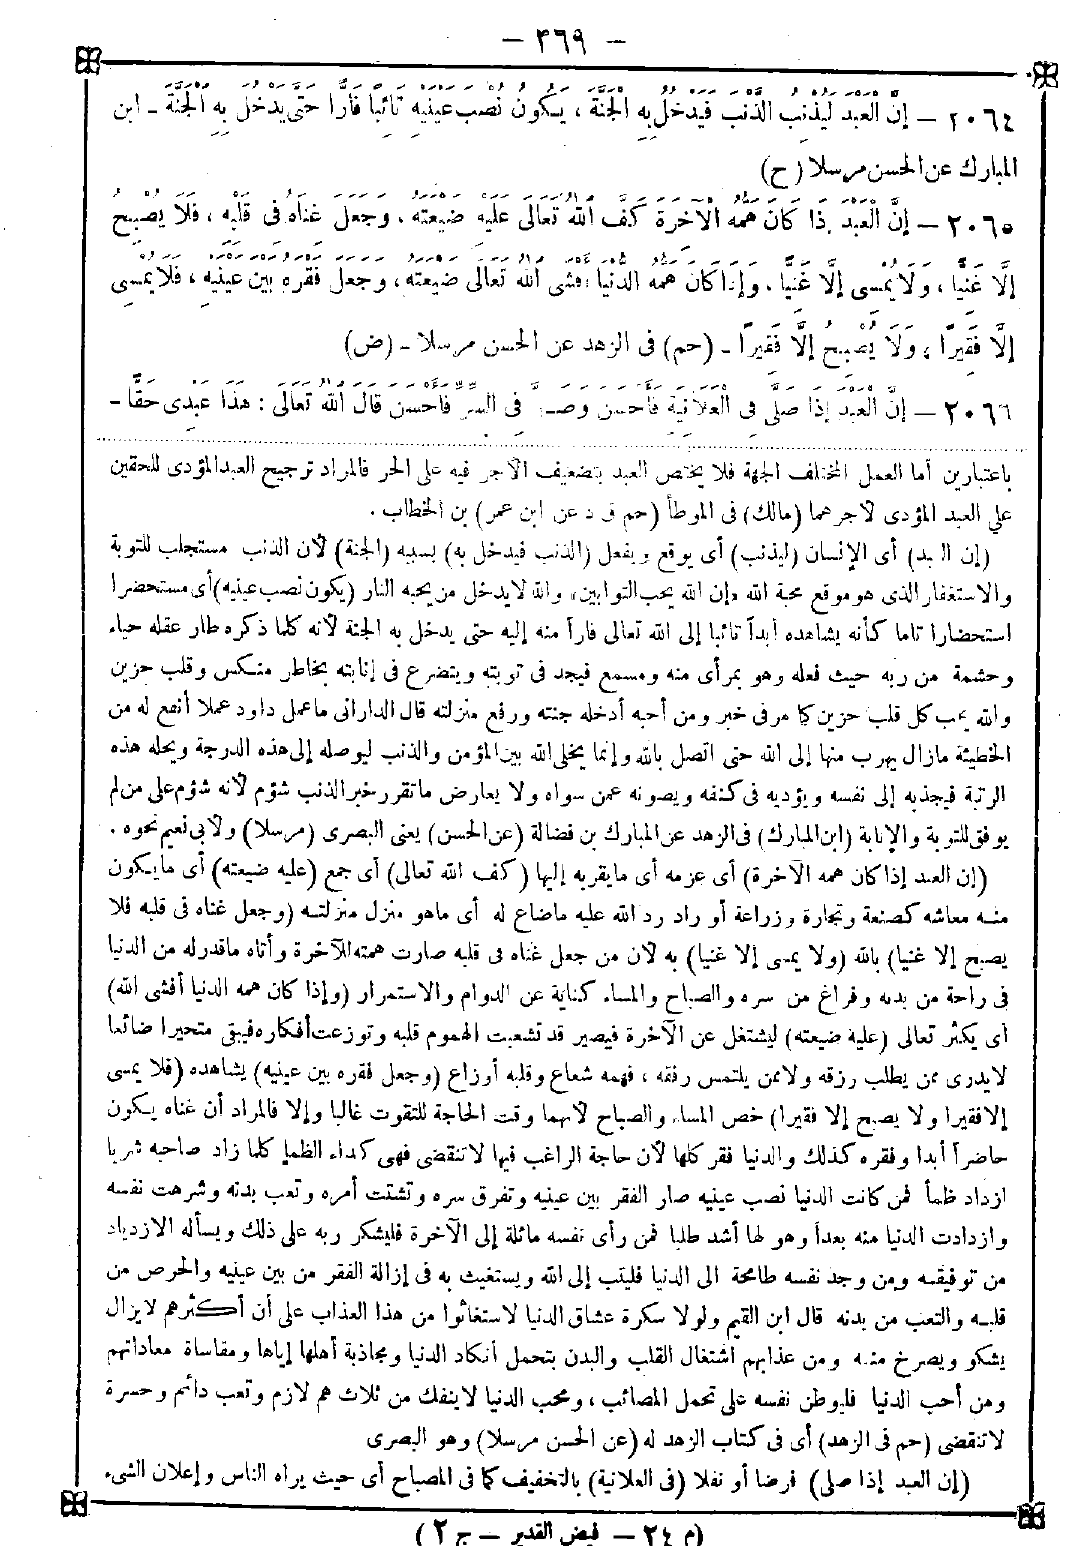 – ٣٦٩ –
٢٠٦٤ – إِنَّ الْعَبْدَ لَيُذْنِبُ الذَّنْبَ فَيَدْخُلُ بِهِ الْجَنَّةَ ، يَكُونُ نُصْبَ عَيْنَيْهِ تَائِبًا فَارًّا حَتَّى يَدْخُلَ بِهِ الْجَنَّةَ – ابن
المبارك عن الحسن مرسلا (ح)
٢٠٦٥ – إِنَّ الْعَبْدَ إِذَا كَانَ هَمُّهُ الْآخِرَةَ كَفَّ اللهُ تَعَالَى عَلَيْهِ ضَيْعَتَهُ ، وَجَعَلَ غِنَاهُ فِى قَلْبِهِ ، فَلَا يُصْبِحُ
إِلَّا غَنِيًّا ، وَلَا يُمْسِى إِلَّا غَنِيًّا ، وَإِذَا كَانَ هَمُّهُ الدُّنْيَا أَفْشَى اللهُ تَعَالَى ضَيْعَتَهُ ، وَجَعَلَ فَقْرَهُ بَيْنَ عَيْنَيْهِ ، فَلَا يُمْسِى
إِلَّا فَقِيرًا ، وَلَا يُصْبِحُ إِلَّا فَقِيرًا – (حم) فى الزهد عن الحسن مرسلا – (ض)
٢٠٦٦ – إِنَّ الْعَبْدَ إِذَا صَلَّى فِى الْعَلَانِيَةِ فَأَحْسَنَ وَصَلَّى فِى السِّرِّ فَأَحْسَنَ قَالَ اللهُ تَعَالَى : هَذَا عَبْدِى حَقًّا –
باعتبارين أما العمل المختلف الجهة فلا يختص العبد بتضعيف الأجر فيه على الحر فالمراد ترجيح العبد المؤدى للحقين
على العبد المؤدى لأحرهما (مالك) فى الموطأ (حم ق د عن ابن عمر) بن الخطاب .
(إن العبد) أى الإنسان (ليذنب) أى يوقع ويفعل (الذنب فيدخل به) بسببه (الجنة) لأن الذنب مستجلب للتوبة
والاستغفار الذى هو موقع محبة الله «إن الله يحب التوابين» والله لا يدخل من يحبه النار (يكون نصب عينيه) أى مستحضرا
استحضارا تاما كأنه يشاهده أبداً تائبا إلى الله تعالى فاراً منه إليه حتى يدخل به الجنة لأنه كلما ذكره طار عقله حياء
وحشمة من ربه حيث فعله وهو بمرأى منه ومسمع فيجد فى توبته ويتضرع فى إنابته بخاطر منكس وقلب حزين
والله يحب كل قلب حزين كما مر فى خبر ومن أحبه أدخله جنته ورفع منزلته قال الدارانى ما عمل داود عملا أنفع له من
الخطيئة مازال يهرب منها إلى الله حتى اتصل بالله وإنما يخلى الله بين المؤمن والذنب ليوصله إلى هذه الدرجة ويحله هذه
الرتبة فيجذبه إلى نفسه ويؤديه فى كنفه ويصونه عمن سواه ولا يعارض ما تقرر خبر الذنب شؤم لأنه شؤم على من لم
يوفق للتوبة والإنابة (ابن المبارك) فى الزهد عن المبارك بن فضالة (عن الحسن) يعنى البصرى (مرسلا) ولأبى نعيم نحوه .
(إن العبد إذا كان همه الآخرة) أى عزمه أى ما يقربه إليها (كف الله تعالى) أى جمع (عليه ضيعته) أى ما يكون
منه معاشه كصنعة وتجارة وزراعة أو راد رد الله عليه ما ضاع له أى ما هو منزل منزلته (وجعل غناه فى قلبه فلا
يصبح إلا غنيا) بالله (ولا يمسى إلا غنيا) به لأن من جعل غناه فى قلبه صارت همته للآخرة وأتاه ما قدر له من الدنيا
فى راحة من بدنه وفراغ من سره والصباح والمساء كناية عن الدوام والاستمرار (وإذا كان همه الدنيا أفشى الله)
أى يكثر تعالى (عليه ضيعته) ليشتغل عن الآخرة فيصير قد تشعبت الهموم قلبه وتوزعت أفكاره فيبقى متحيرا ضائعا
لا يدرى ممن يطلب رزقه ولا ممن يلتمس رفقه ، فهمه شعاع وقلبه أوزاع (وجعل فقره بين عينيه) يشاهده (فلا يمسى
إلا فقيرا ولا يصبح إلا فقيرا) خص المساء والصباح لأنهما وقت الحاجة للتقوت غالبا وإلا فالمراد أن غناه يكون
حاضراً أبدا وفقره كذلك والدنيا فقر كلها لأن حاجة الراغب فيها لا تنقضى فهى كداء الظما كلما زاد صاحبه شربا
ازداد ظمأ فمن كانت الدنيا نصب عينيه صار الفقر بين عينيه وتفرق سره وتشتت أمره وتعب بدنه وشرهت نفسه
وازدادت الدنيا منه بعداً وهو لها أشد طلبا فمن رأى نفسه مائلة إلى الآخرة فليشكر ربه على ذلك ويسأله الازدياد
من توفيقه ومن وجد نفسه طامحة الى الدنيا فليتب إلى الله ويستغيث به فى إزالة الفقر من بين عينيه والحرص من
قلبه والتعب من بدنه قال ابن القيم ولولا سكرة عشاق الدنيا لاستغاثوا من هذا العذاب على أن أكثرهم لا يزال
يشكو ويصرخ منه ومن عذابهم اشتغال القلب والبدن بتحمل أنكاد الدنيا ومجاذبة أهلها إياها ومقاساة معاداتهم
ومن أحب الدنيا فليوطن نفسه على تحمل المصائب ، ومحب الدنيا لا ينفك من ثلاث هم لازم وتعب دائم وحسرة
لا تنقضى (حم فى الزهد) أى فى كتاب الزهد له (عن الحسن مرسلا) وهو البصرى
(إن العبد إذا صلى) فرضا أو نفلا (فى العلانية) بالتخفيف كما فى المصباح أى حيث يراه الناس وإعلان الشىء
(م ٢٤ – فيض القدير – ج ٢)